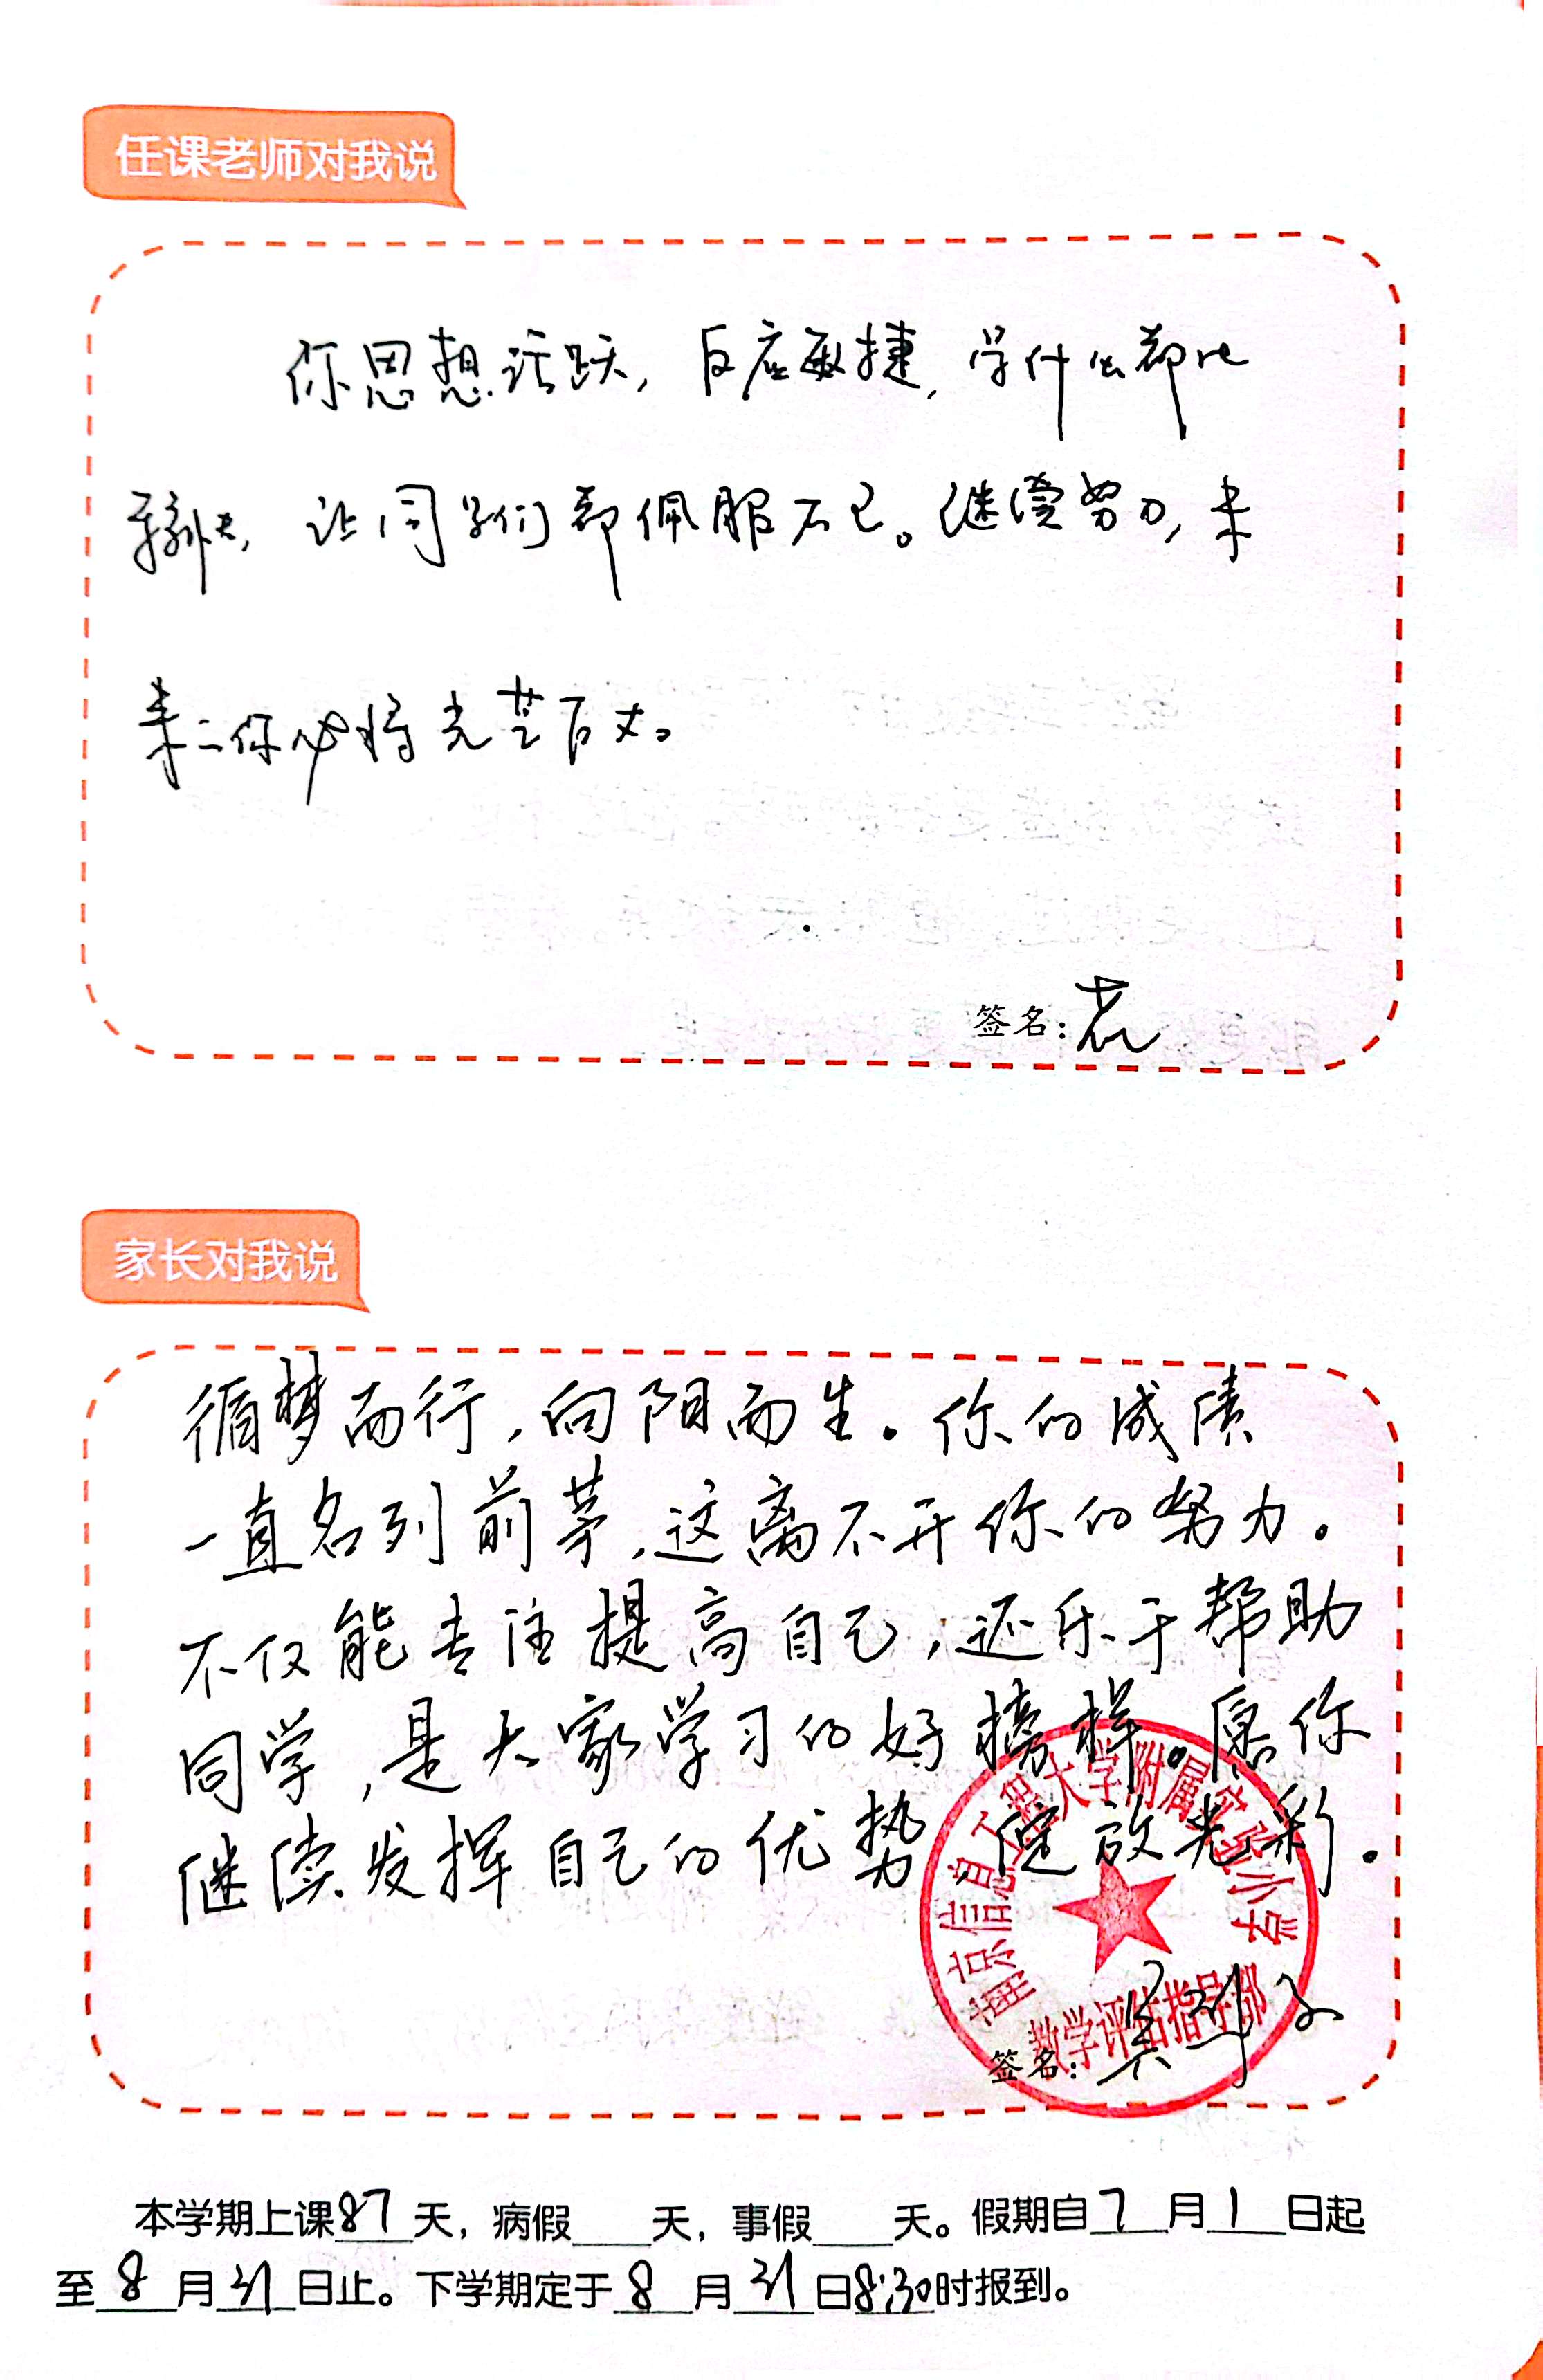 任课老师对我说
你思想活跃，反应敏捷，学什么都比
较快，让同学们都佩服不已。继续努力，未
来的你必将光芒百丈。
签名：
家长对我说
循梦而行，向阳而生。你的成绩
一直名列前茅，这离不开你的努力。
不仅能专注提高自己，还乐于帮助
同学，是大家学习的好榜样。愿你
继续发挥自己的优势，绽放光彩。
南京信息工程大学附属实验小学
教学评估指导部
签名：
本学期上课87天，病假___天，事假___天。假期自7月1日起
至8月31日止。下学期定于8月31日8:30时报到。